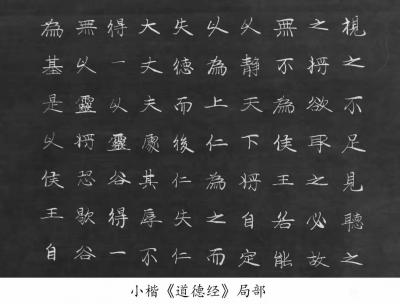 視之不足見聽之
之將欲取之必故
無不為侯王若能
以靜天下將自定
以為上仁為之而
失德而後仁失仁
大丈夫處其厚不
得一以靈谷得一
無以靈將恐歇谷
為基是以侯王自
小楷《道德经》局部